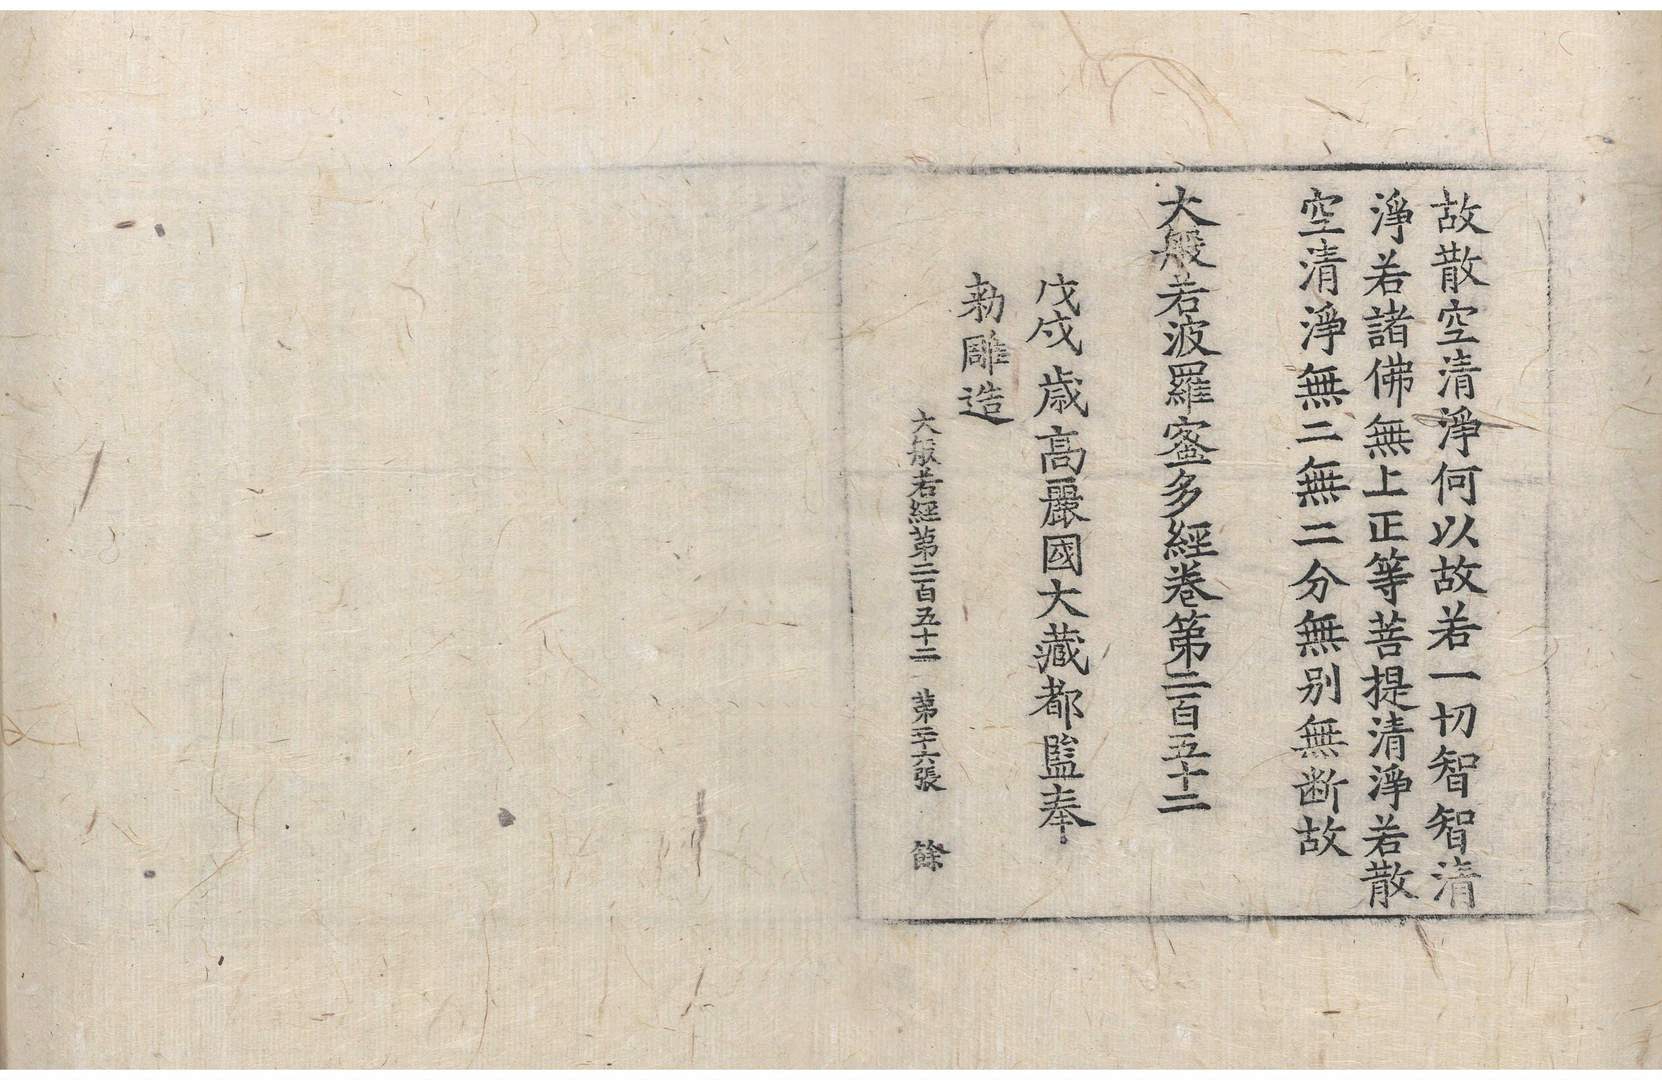 故散空清淨何以故若一切智智清
淨若諸佛無上正等菩提清淨若散
空清淨無二無二分無別無断故
大般若波羅蜜多經卷第二百五十二
戊戌歲高麗國大藏都監奉
勅雕造
大般若經第二百五十二 第二十六張 餘